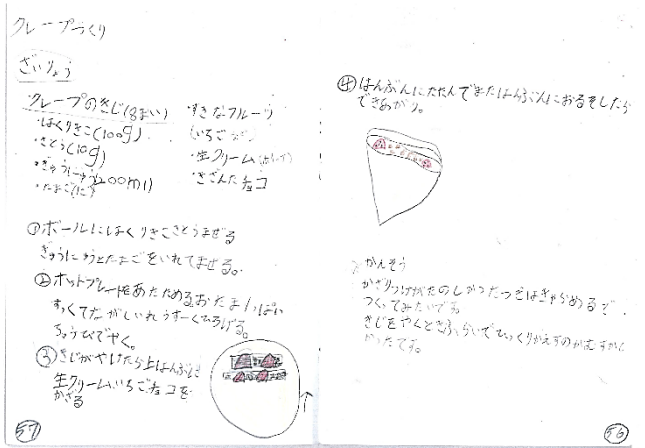 クレープづくり
ざいりょう
クレープのきじ(8まい)
・はくりきこ(100g)
・さとう(10g)
・ぎゅうにゅう(200ml)
・たまご(1こ)
・すきなフルーツ
(いちごなど)
・生クリーム
・きざんだチョコ
①ボールにはくりきこさとうまぜる
ぎゅうにゅうとたまごをいれてまぜる。
②ホットプレートをあたためるおたま1ぱい
すくってながしいれうすーくひろげる。
ちょうびでやく。
③きじがやけたら上はんぶんに
生クリームいちごチョコを
かざる
57
④はんぶんにたたんでまたはんぶんにおるをしたら
できあがり。
かんそう
かざりつけがたのしかったつぎはきゃらめるで
つくってみたいです。
きじをやくときふらいでひっくりかえすのがむずかし
かったです。
56